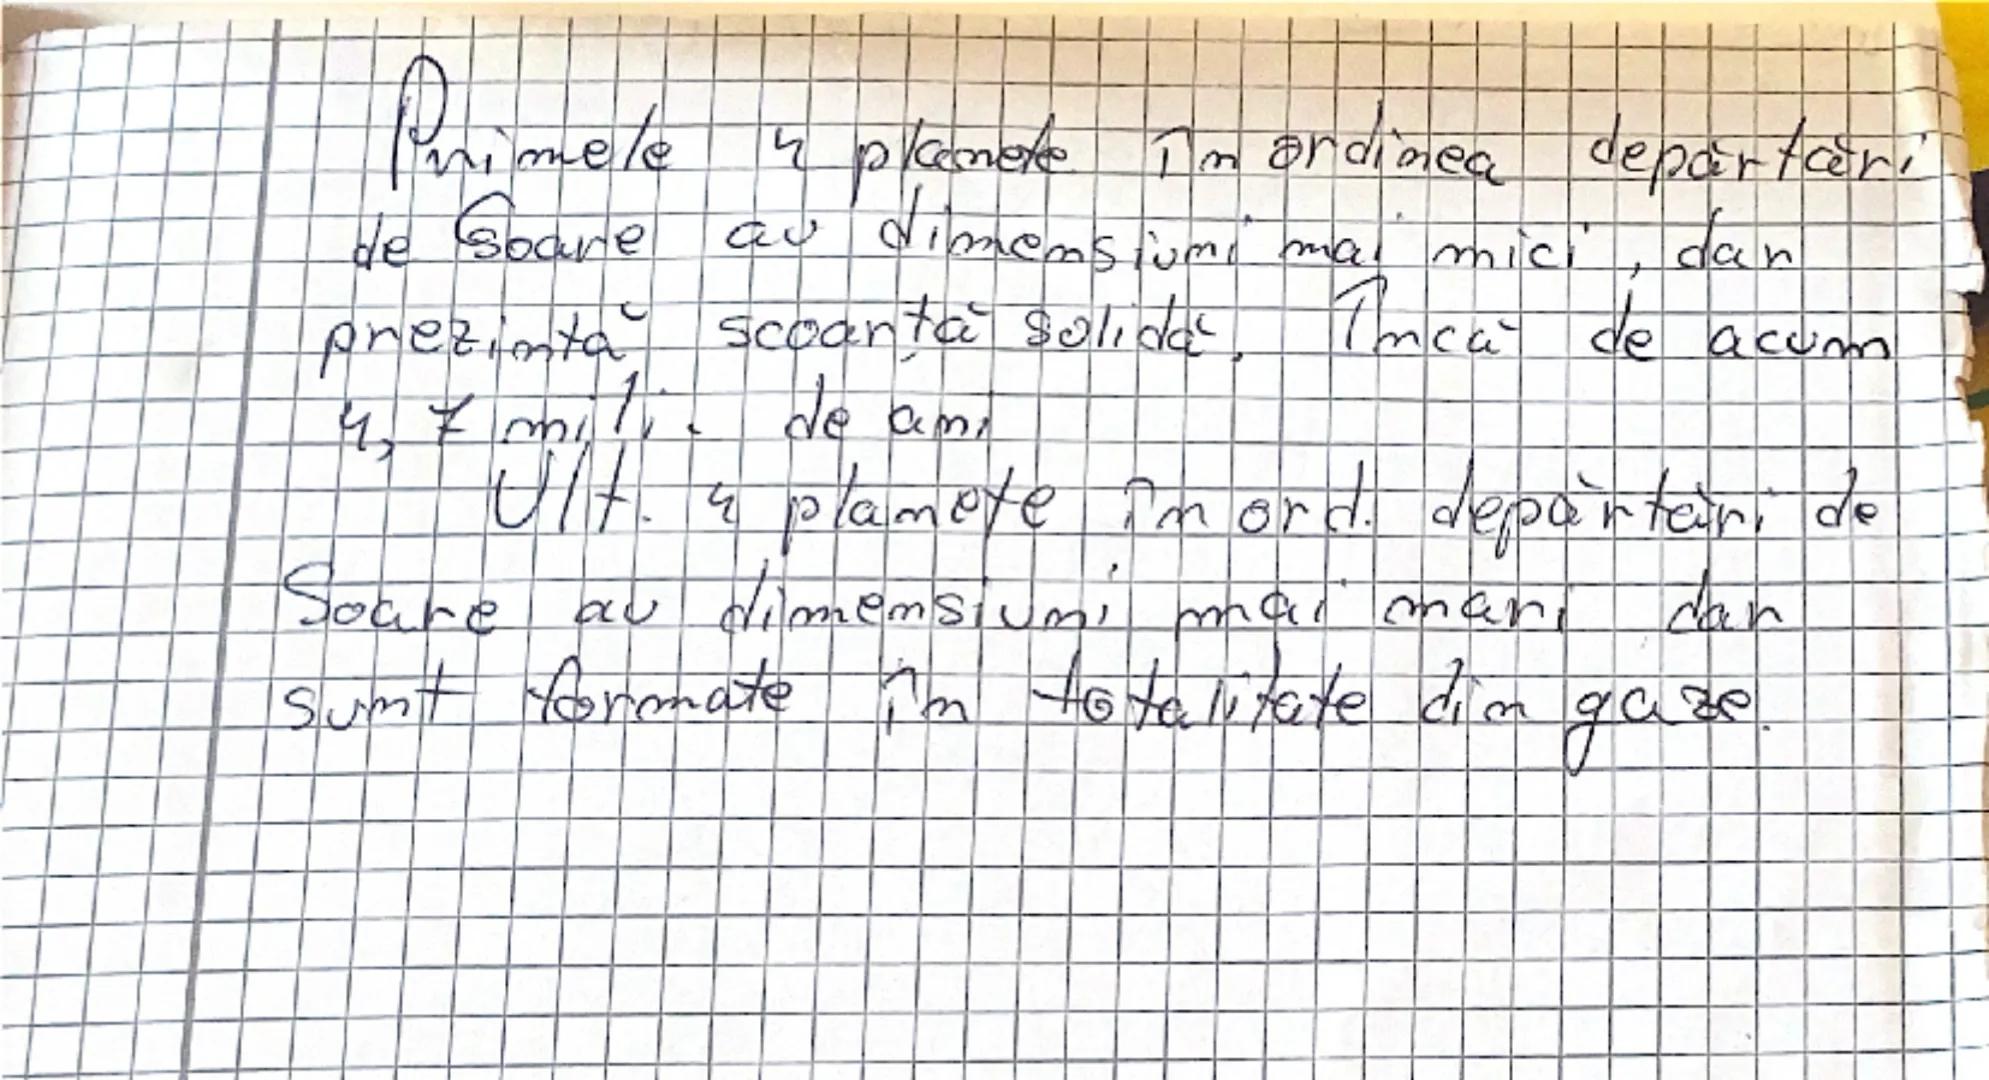 Primele 4 planete în ordinea depărtări
de Soare au dimensiuni mai mici, dar
prezintă scoarță solidă. Încă de acum
4,7 mili. de ani
Ult. 4 planete în ord. depărtări de
Soare au dimensiuni mai mari dar
sunt formate în totalitate din gaze.